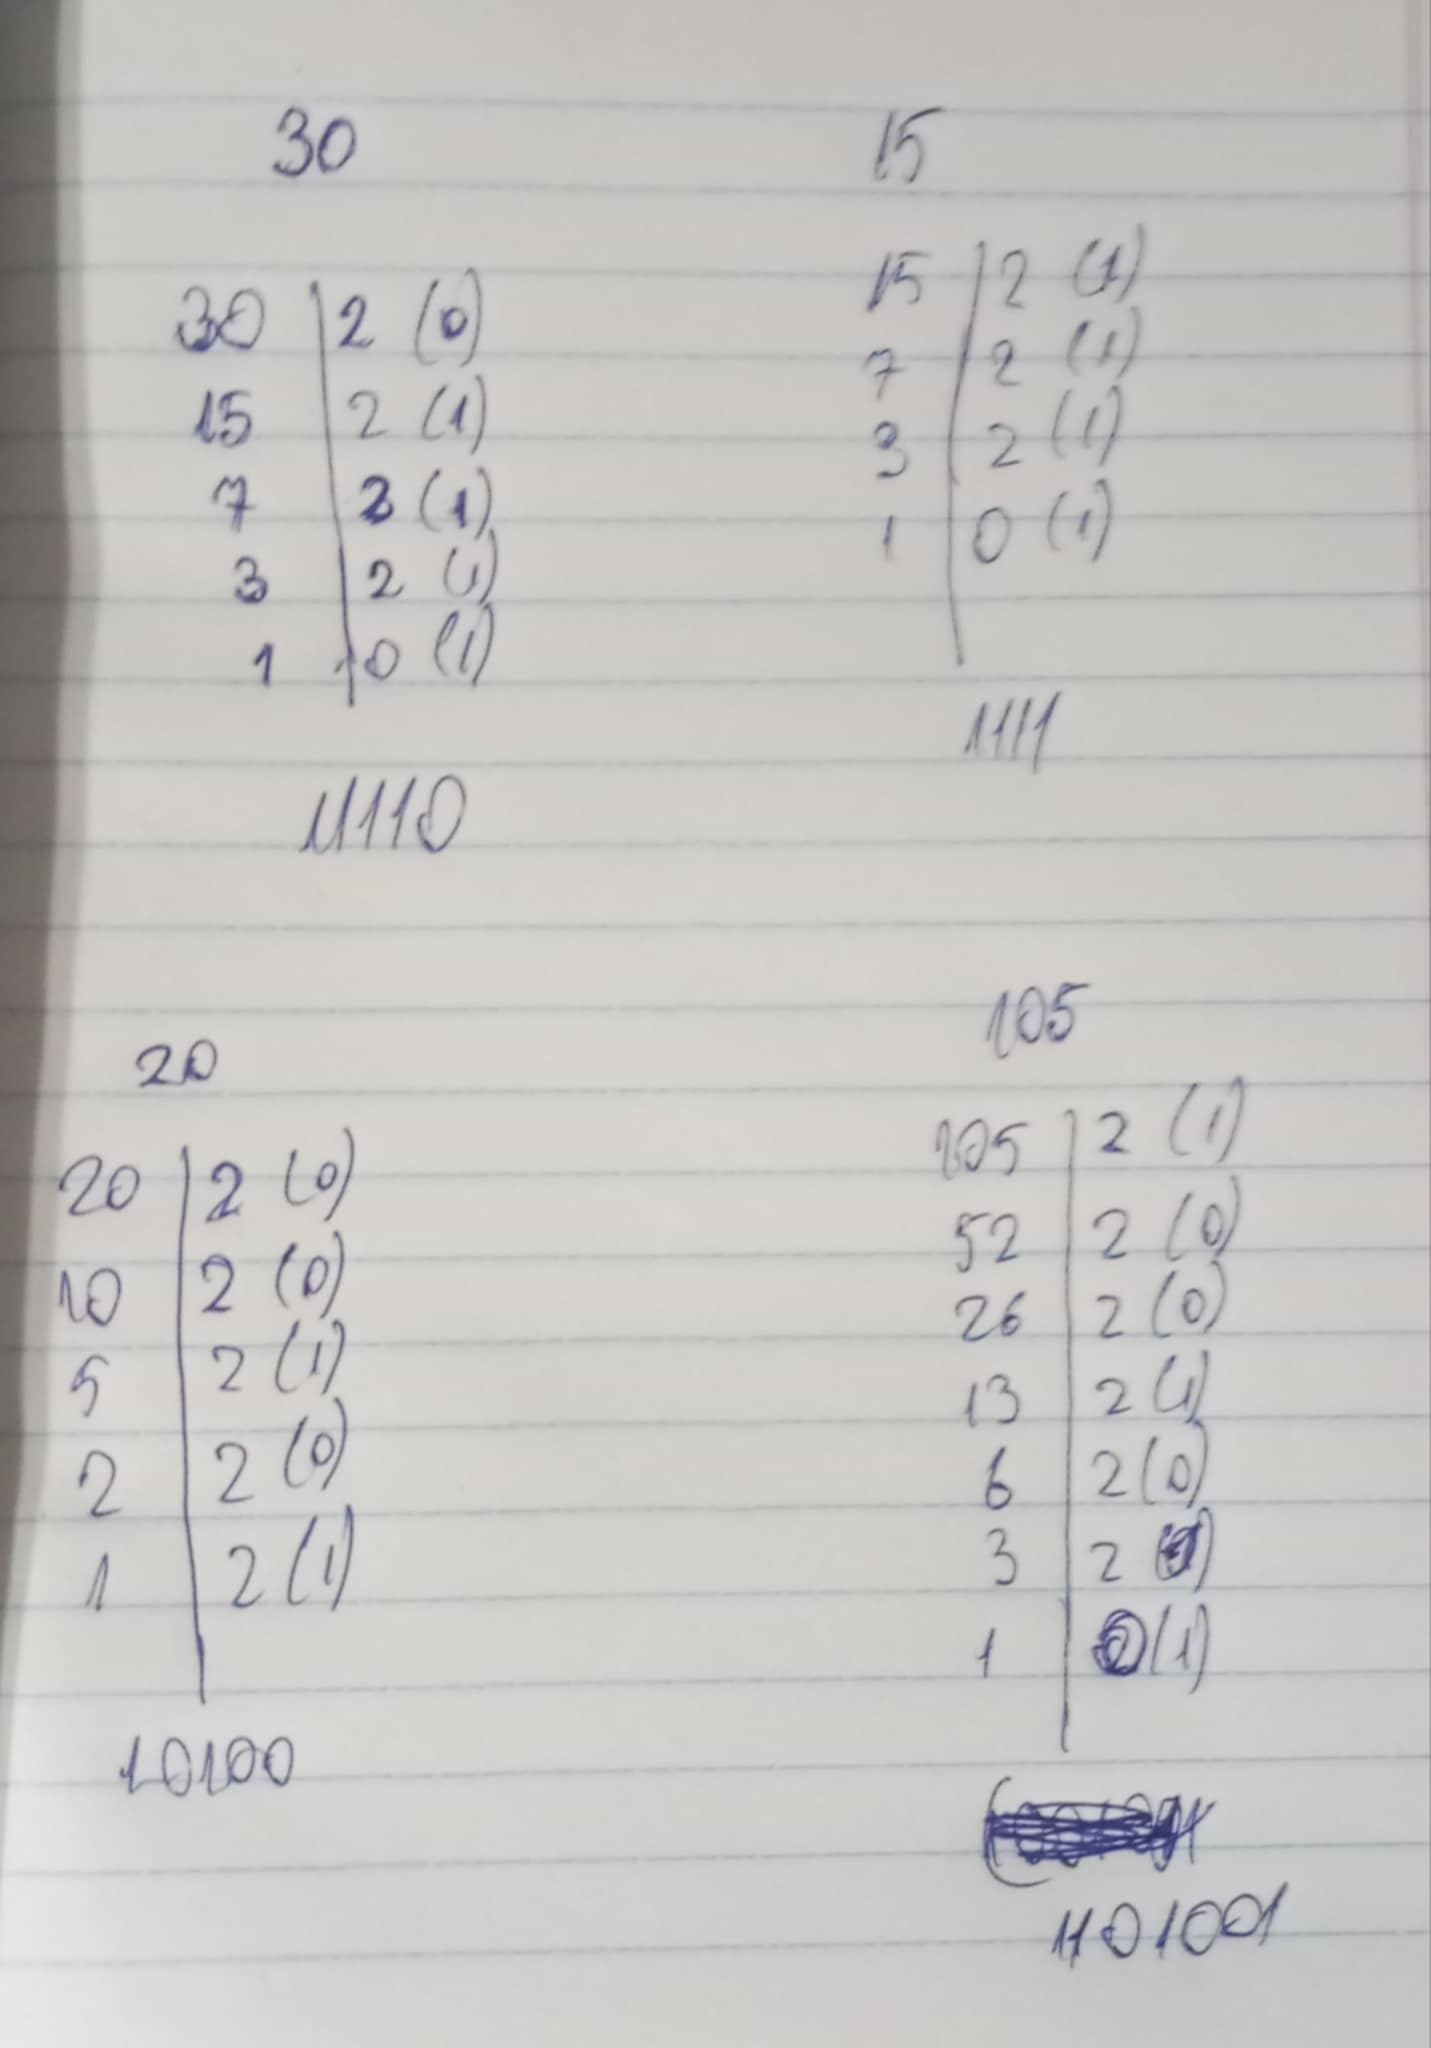 30
30 | 2 (0)
15 | 2 (1)
7 | 2 (1)
3 | 2 (1)
1 | 0 (1)
11110
15
15 | 2 (1)
7 | 2 (1)
3 | 2 (1)
1 | 0 (1)
1111
20
20 | 2 (0)
10 | 2 (0)
5 | 2 (1)
2 | 2 (0)
1 | 2 (1)
10100
105
105 | 2 (1)
52 | 2 (0)
26 | 2 (0)
13 | 2 (1)
6 | 2 (0)
3 | 2 (1)
1 | (1)
1101001